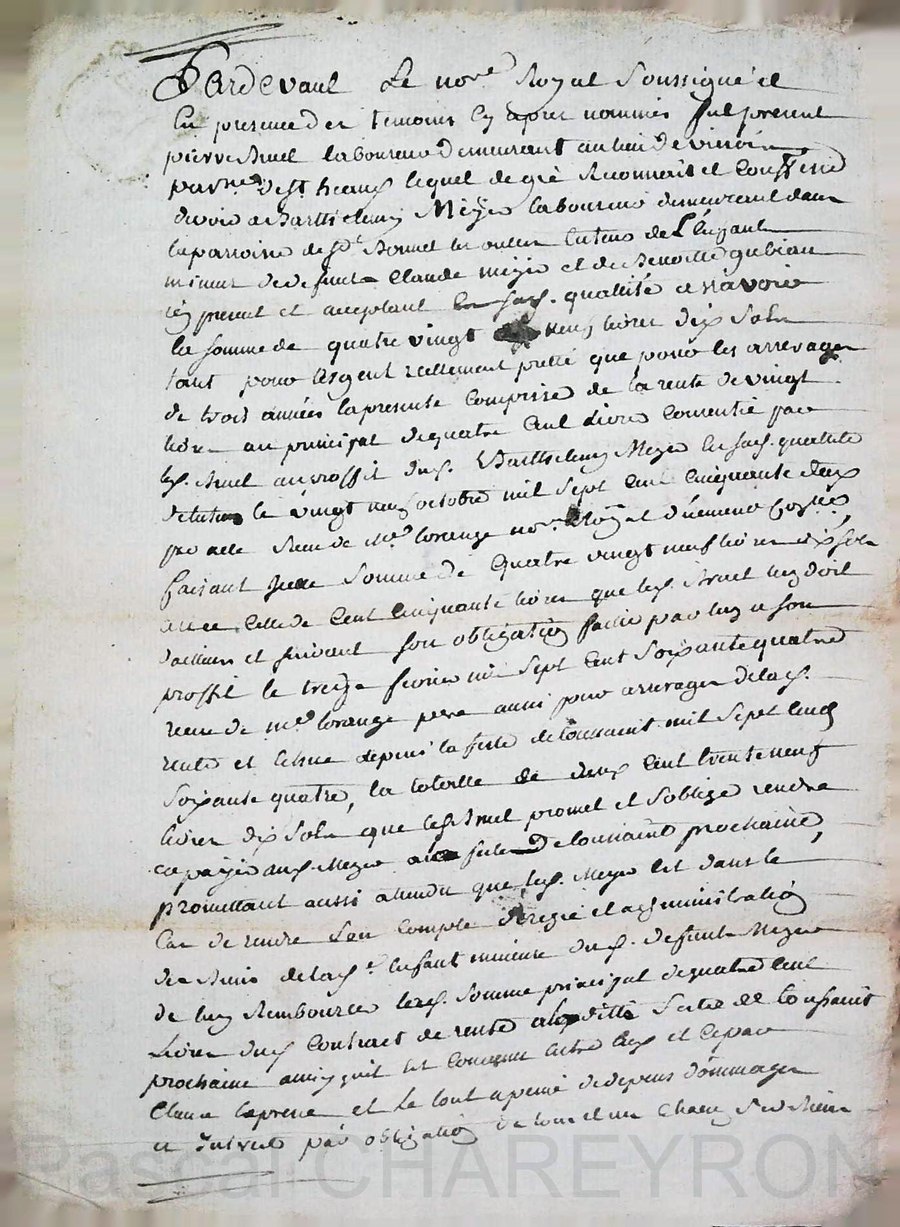 Pardevant Le no.re Royal Soussigné et
En presence des temoins Cy apres nommés fut present
pierre Bruel laboureur demeurant au lieu de
par.sse de St. heans lequel de gré Reconnait et Confesse
devoir a Barthelemy Meÿer laboureur demeurant dans
la parroisse de St. Bonnet les oulles tuteur de L'Enfant
mineur de deffunt Claude meÿer et de Benoitte gubian
icy present et acceptant En sad. quallité a sçavoir
la somme de quatre vingt neuf livres dix Sols
tant pour Argent réellement pretté que pour les arrerages
de trois années la presente Comprise de la rente de vingt
livres au principal de quatre Cent livres Consentie par
led. Bruel au proffit dud. Barthelemy Meÿer En sad. quallité
de tuteur le vingt neuf octobre mil Sept Cent Cinquante deux
par acte Receu de M.e lorange no.re Royal
faisant Jcelle Somme de quatre vingt neuf livres dix sols
avec Celle de Cent Cinquante livres que led. Bruel luy doit
d'ailleurs et suivant son obligation faitte par luy a son
proffit le treize fevrier mil Sept Cent Soixante quatre
receue de m.e lorange pere aussi pour arrerages de lad.
rente et Echue depuis la feste de toussaint mil Sept Cent
Soixante quatre, la totalle de deux Cent trente neuf
livres dix Sols que led. Bruel promet et s'oblige rendre
et payer aud. Meyer a la feste De toussaint prochaine,
promettant aussi attendu que led. Meyer Est dans le
Cas de rendre Son Compte de regie et administration
des Biens de lad.e Enfant mineure dud. deffunt Meyer
de luy Rembourcer lad. somme principal de quatre Cent
Livres dud. Contract de rente a laditte feste de toussaint
prochaine ainsy quil Est Convenu Entre Eux et Ce par
Clause Expresse et Le tout a peine de depens dommages
et interests par obligation de tous et un Chacun Ses Biens
Pascal CHAREYRON